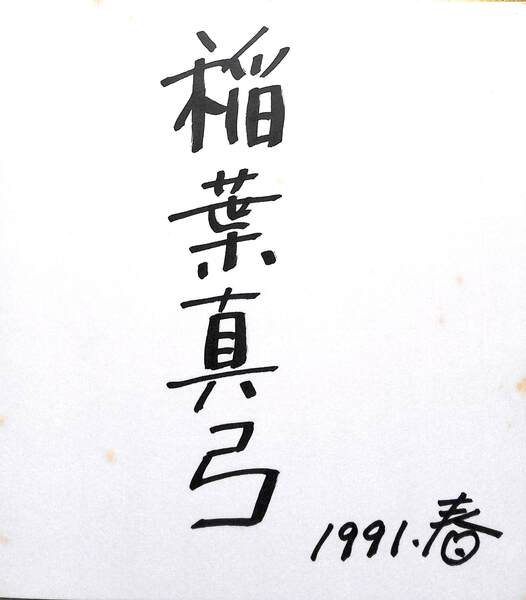 稲葉真弓
1991.春